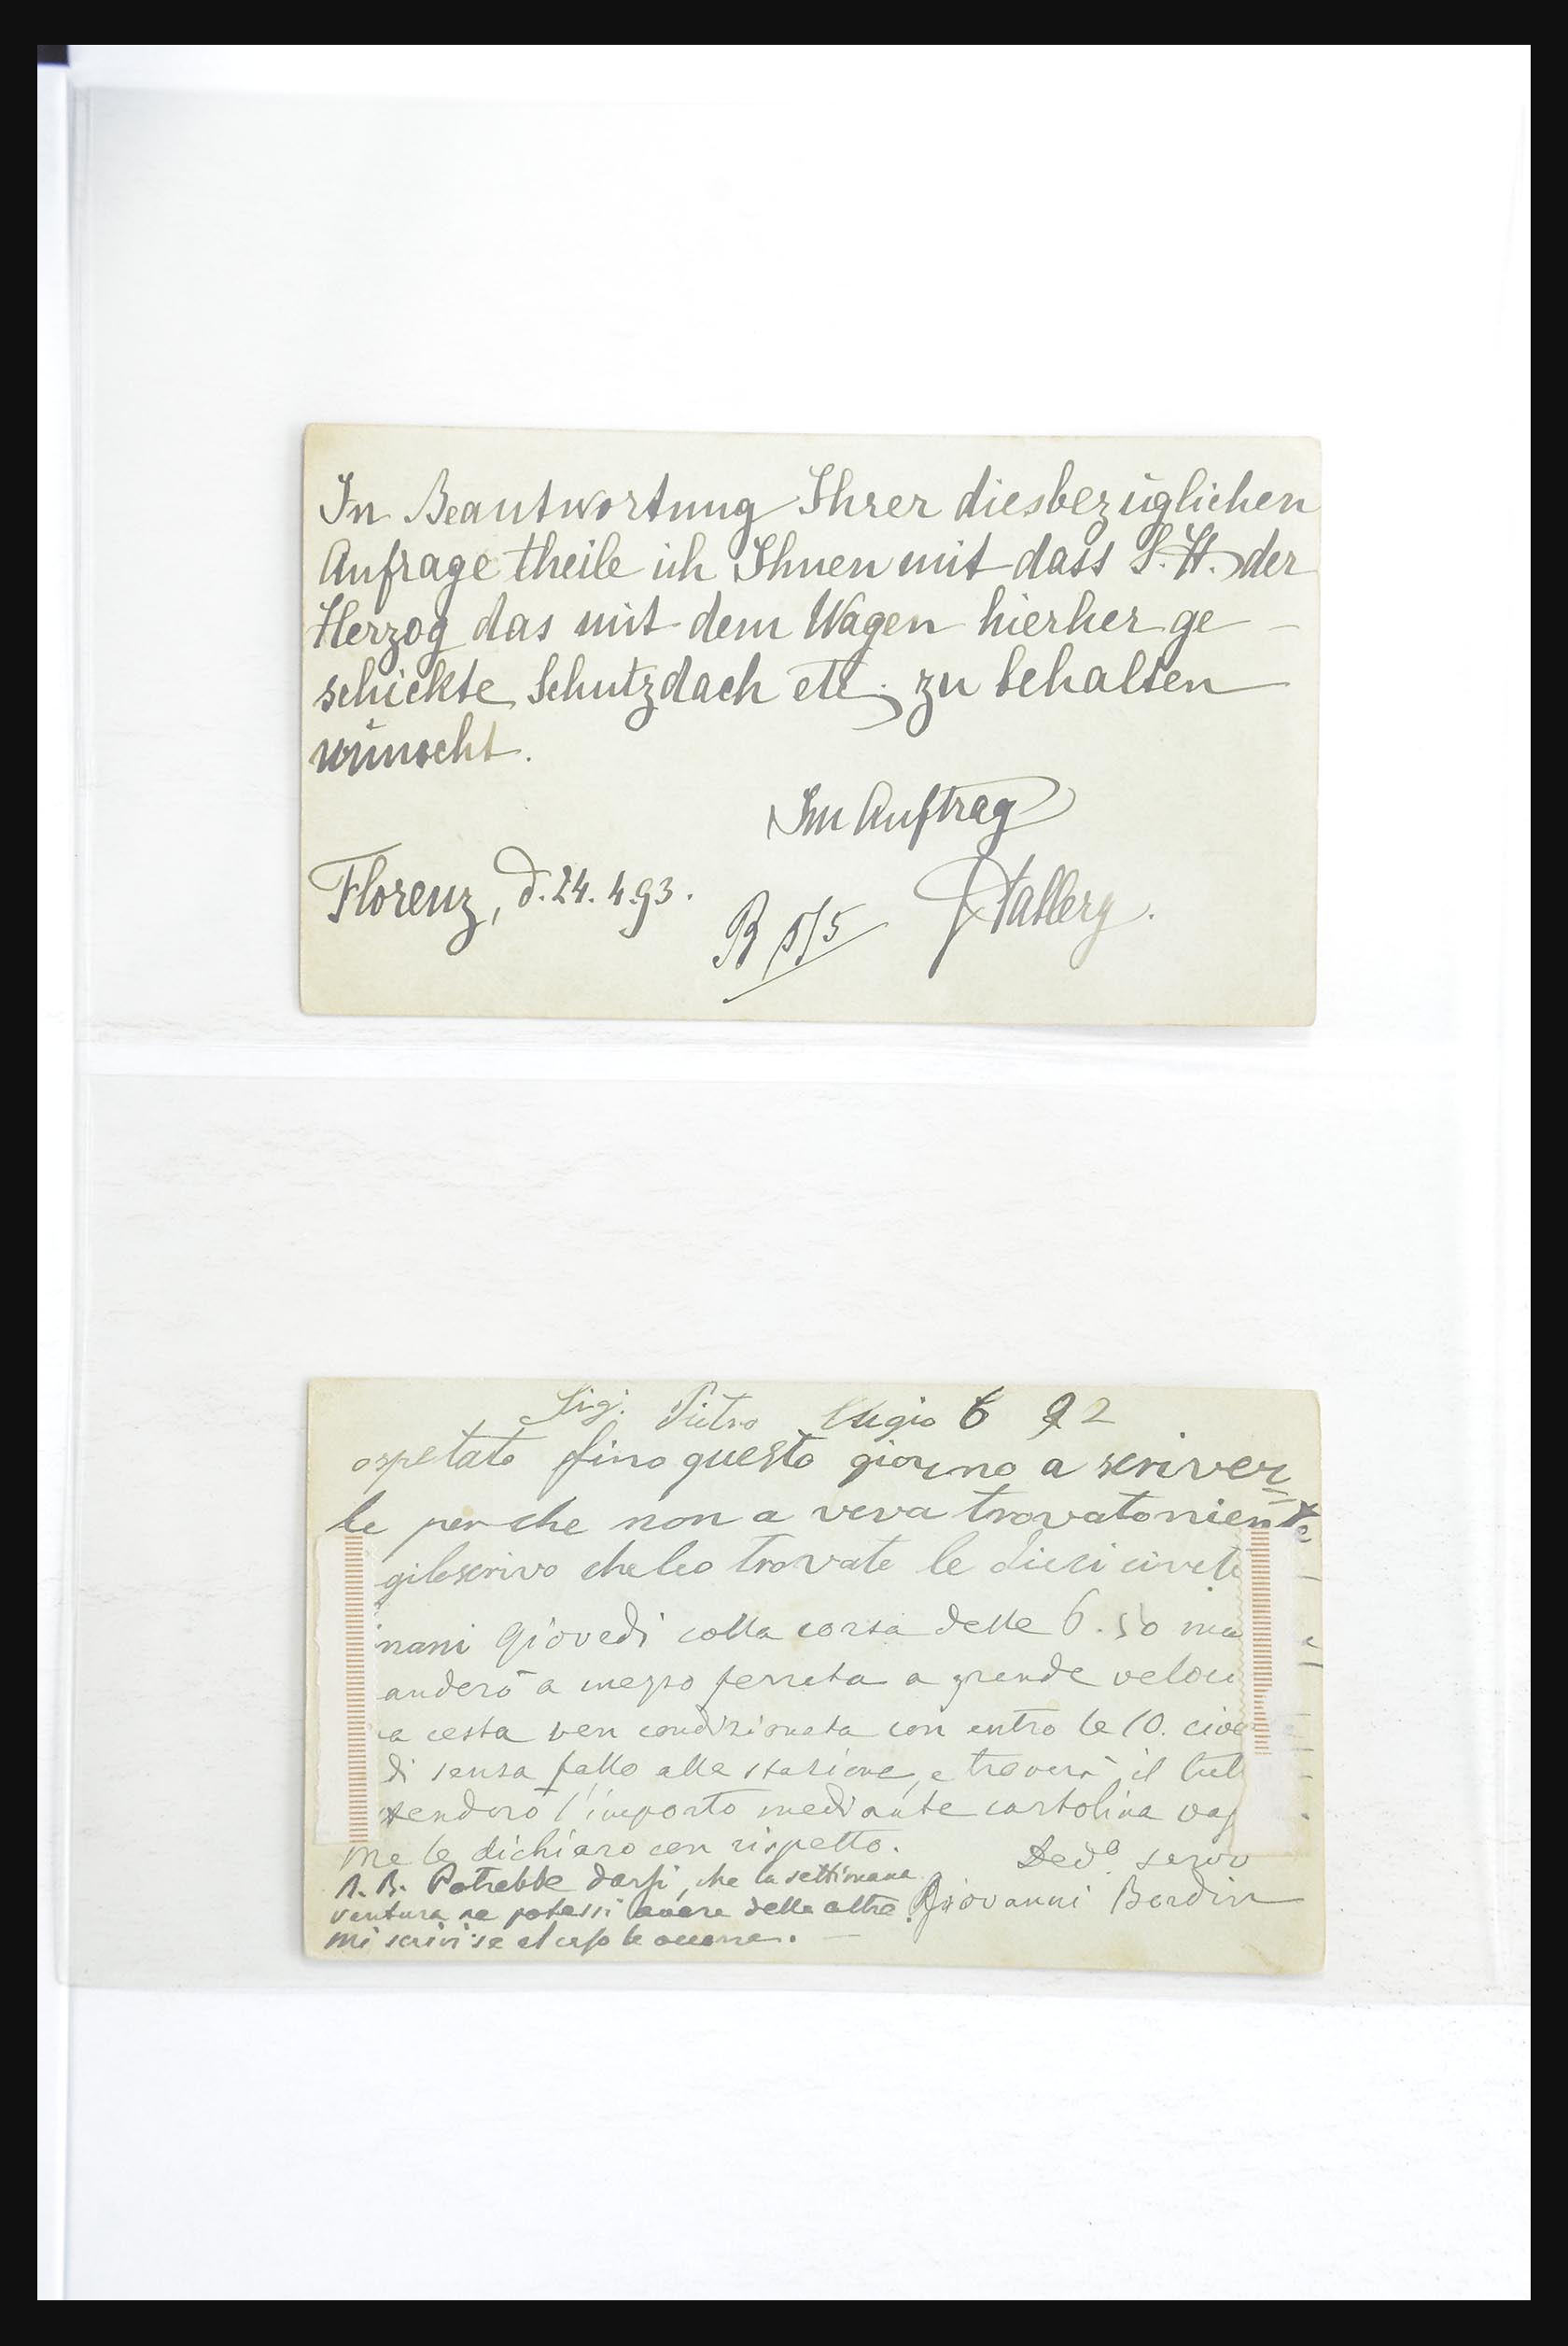 In Beantwortung Ihrer diesbezüglichen
Anfrage theile ich Ihnen mit dass S. H. der
Herzog das mit dem Wagen hierher ge-
schickte Schutzdach etc. zu behalten
wünscht.
Im Auftrag
Florenz, d. 24. 4. 93.
B 1/5
Sig. Pietro 6 92
ospetato fino questo giorno a scriver
le per che non a veva trovato niente
gilescrivo che leo trovate le dieci civete
nani Giovedi colla corsa delle 6.50 ma
anderò a mezzo ferrata a grande veloci
a cesta ven condizionata con entro le 10. cive
di sensa fallo alla stazione, e troverà il tut
tenderò l'importo mediante cartolina vag
me le dichiaro con rispetto.
Dedo. servo
N. B. Potrebbe darsi, che la settimana
ventura ne potessi avere delle altre
Giovanni Bordin
mi scrivi se al caso le occorre.